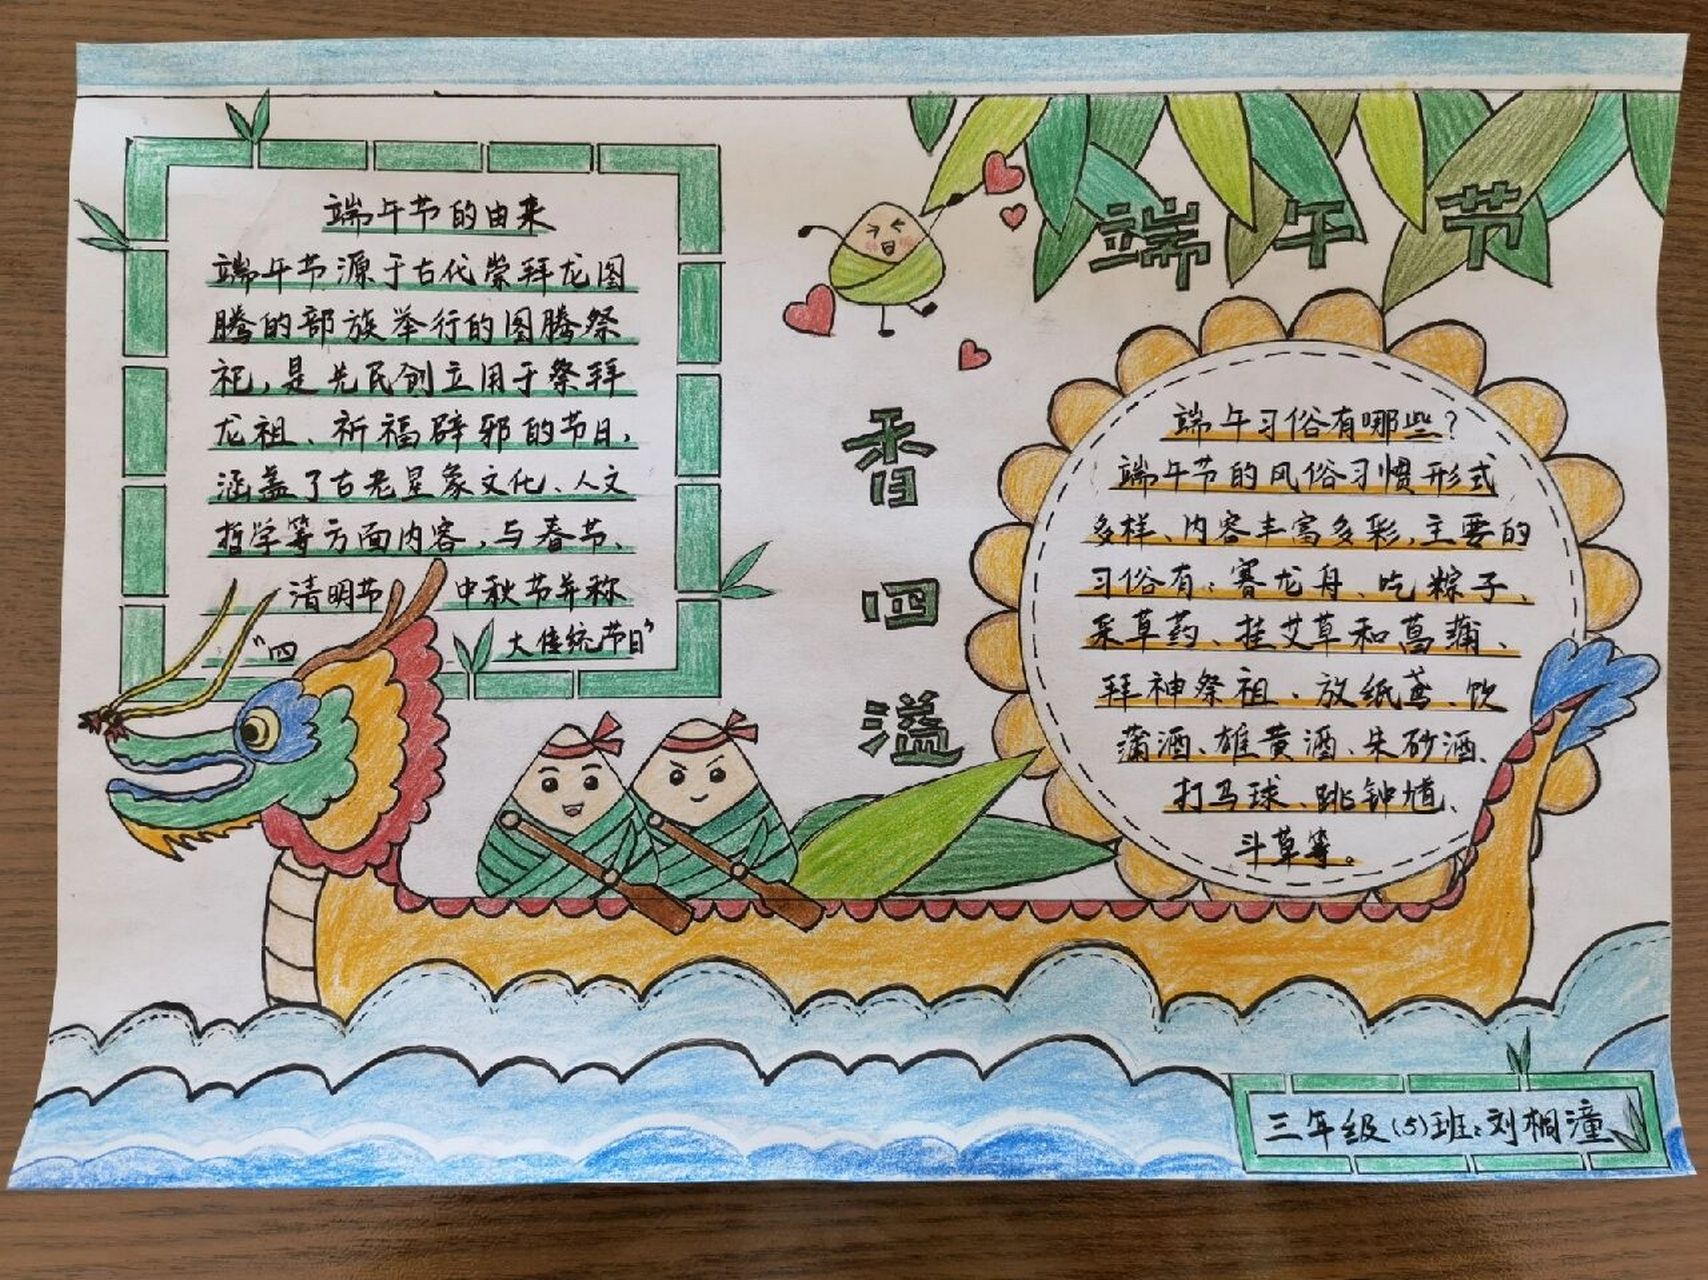 端午节的由来
端午节源于古代崇拜龙图
腾的部族举行的图腾祭
祀,是先民创立用于祭拜
龙祖、祈福辟邪的节日,
涵盖了古老星象文化、人文
哲学等方面内容,与春节、
清明节 中秋节并称
“四 大传统节日”
端午节
香
四
溢
端午习俗有哪些?
端午节的风俗习惯形式
多样、内容丰富多彩,主要的
习俗有:赛龙舟、吃粽子、
采草药、挂艾草和菖蒲、
拜神祭祖、放纸鸢、饮
蒲酒、雄黄酒、朱砂酒、
打马球、跳钟馗、
斗草等。
三年级(5)班:刘桐潼